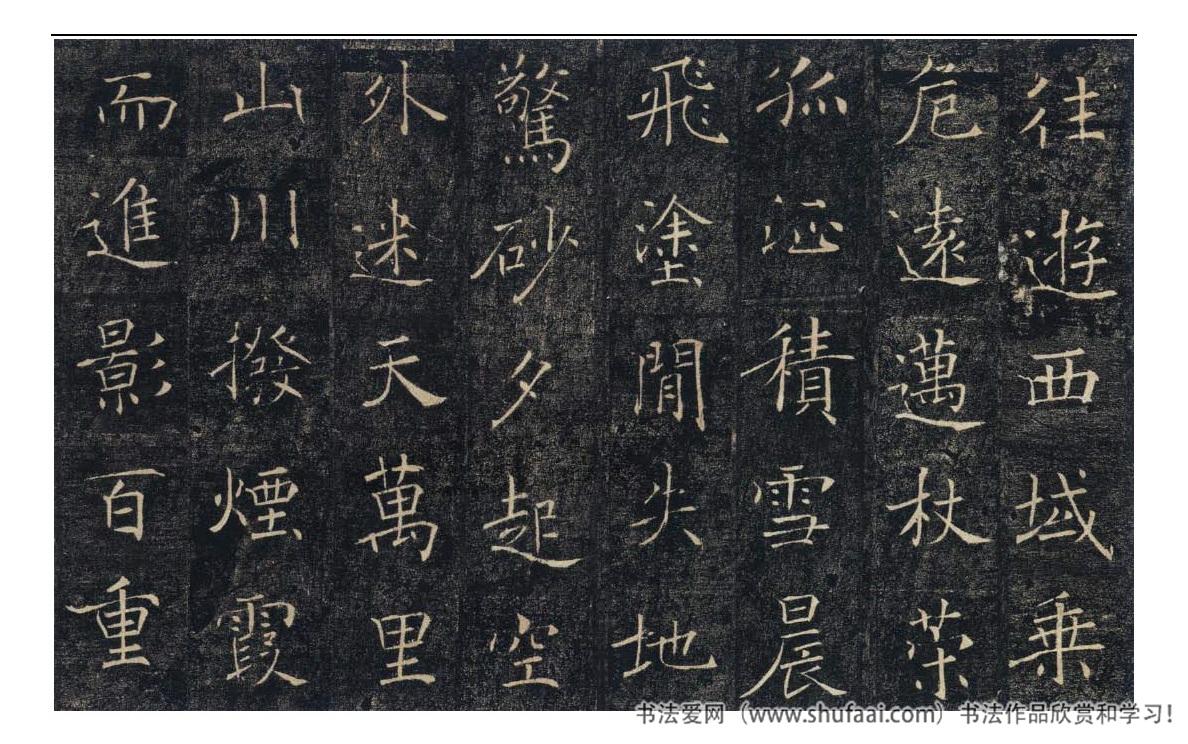 往遊西域乗
危遠邁杖策
孤征積雪晨
飛塗閒失地
驚砂夕起空
外迷天萬里
山川撥煙霞
而進影百重
书法爱网（www.shufaai.com）书法作品欣赏和学习！